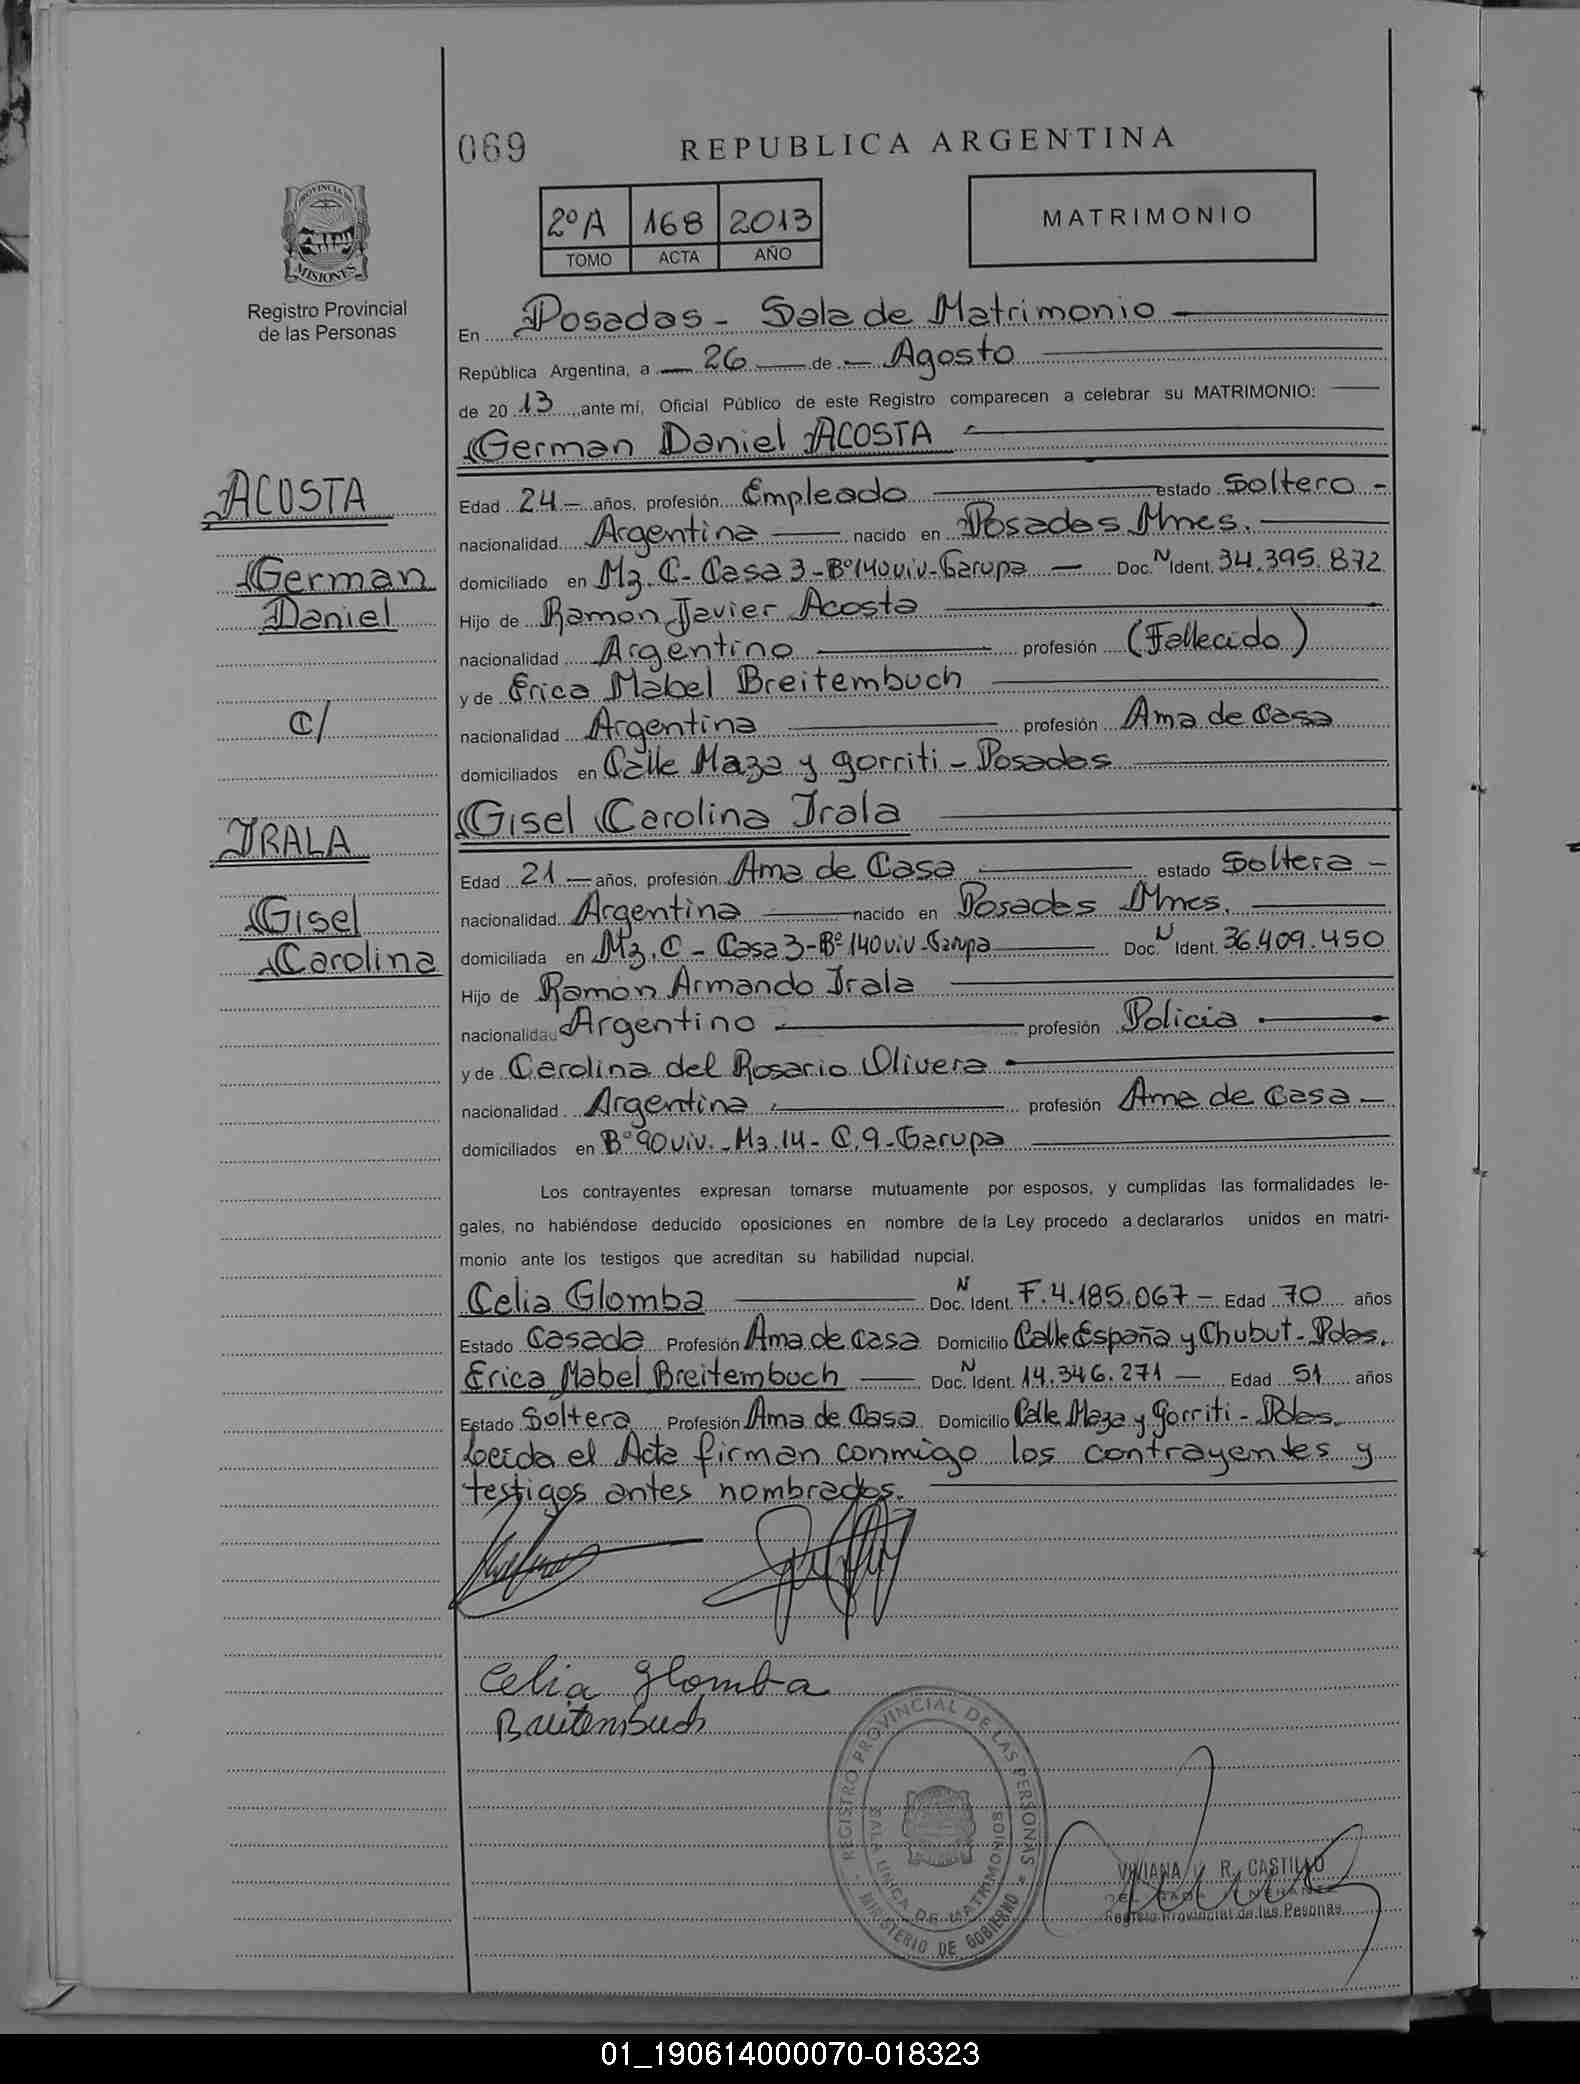 069
REPUBLICA ARGENTINA
2º A 168 2013
TOMO ACTA AÑO
MATRIMONIO
PROVINCIA DE
MISIONES
Registro Provincial
de las Personas
En Posadas - Sala de Matrimonio
República Argentina, a 26 de Agosto
de 2013, ante mí, Oficial Público de este Registro comparecen a celebrar su MATRIMONIO:
German Daniel ACOSTA
ACOSTA
German
Daniel
C/
IRALA
Gisel
Carolina
Edad 24 años, profesión Empleado estado Soltero -
nacionalidad Argentina nacido en Posadas Mnes.
domiciliado en Mz. C - Casa 3 - Bº 140 viv - Garupa Doc. N Ident. 34.395.872
Hijo de Ramon Javier Acosta
nacionalidad Argentino profesión (Fallecido)
y de Erica Mabel Breitembuch
nacionalidad Argentina profesión Ama de Casa
domiciliados en Calle Maza y Gorriti - Posadas
Gisel Carolina Irala
Edad 21 años, profesión Ama de Casa estado Soltera -
nacionalidad Argentina nacido en Posadas Mnes.
domiciliada en Mz. C - Casa 3 - Bº 140 viv - Garupa Doc. N Ident. 36.409.450
Hijo de Ramon Armando Irala
nacionalidad Argentino profesión Policia
y de Carolina del Rosario Olivera
nacionalidad Argentina profesión Ama de Casa -
domiciliados en Bº 90 viv. - Mz. 14 - C. 9 - Garupa
Los contrayentes expresan tomarse mutuamente por esposos, y cumplidas las formalidades le-
gales, no habiéndose deducido oposiciones en nombre de la Ley procedo a declararlos unidos en matri-
monio ante los testigos que acreditan su habilidad nupcial.
Celia Glomba Doc. N Ident. F. 4.185.067 - Edad 70 años
Estado Casada Profesión Ama de casa Domicilio Calle España y Chubut - Pdas.
Erica Mabel Breitembuch Doc. N Ident. 14.346.271 - Edad 51 años
Estado Soltera Profesión Ama de Casa Domicilio Calle Maza y Gorriti - Pdas.
Leida el Acta firman conmigo los contrayentes y
testigos antes nombrados.
Celia Glomba
Breitembuch
REGISTRO PROVINCIAL DE LAS PERSONAS
SALA UNICA DE MATRIMONIOS
MINISTERIO DE GOBIERNO
VIVIANA R. CASTILLO
Registro Provincial de las Pesonas
01_190614000070-018323